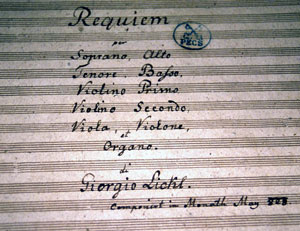 Requiem
per
Soprano, Alto
Tenore Basso.
Violino Primo
Violino Secondo,
Viola, Violone,
et
Organo.
di
Giorgio Lickl.
PECS
Componirt im Monath May